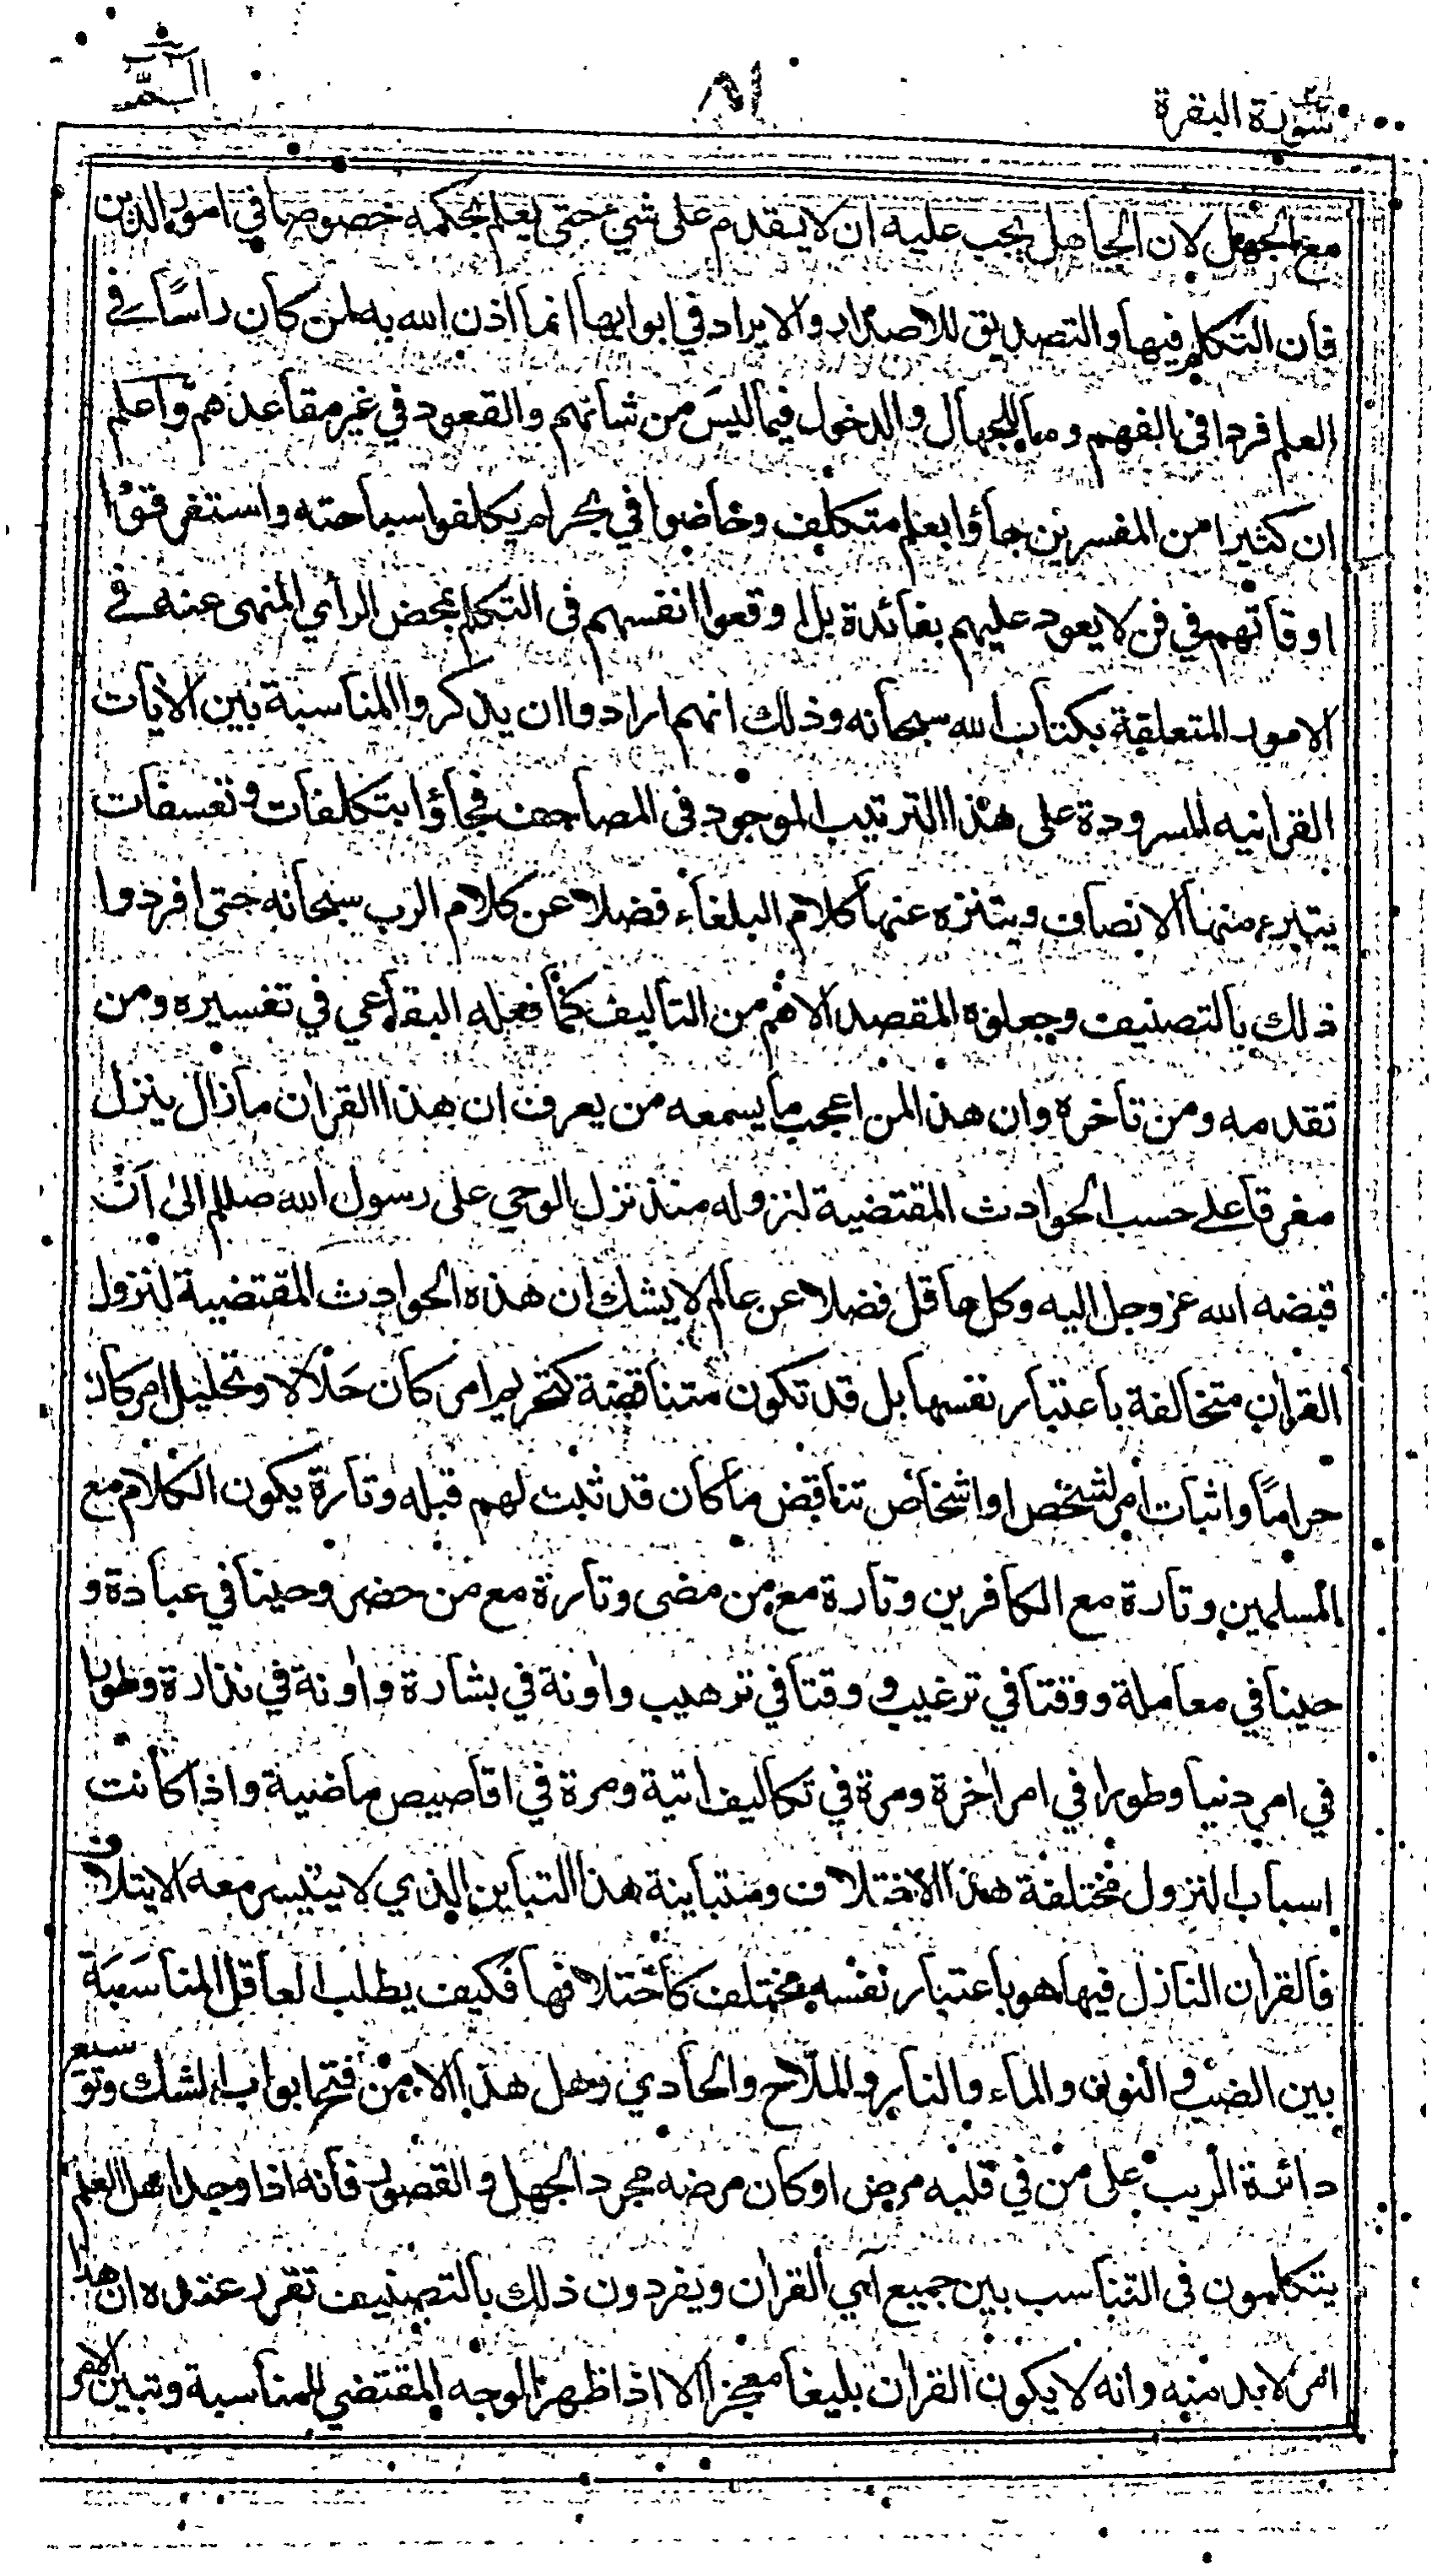 سورة البقرة
٨١
الٓمّٓ
مع الجهل لان الجاهل يجب عليه ان لا يتقدم على شئ حتى يعلم بحكمه خصوصا في امور الدين
فان التكلم فيها والتصديق للاصدار والايراد في ابوابها انما اذن الله به لمن كان راسًا في
العلم فردا فى الفهم وما للجهال والدخول فيما ليس من شانهم والقعود في غير مقاعدهم واعلم
ان كثيرا من المفسرين جاؤا بعلم متكلف وخاضوا في بحر لم يكلفوا سباحته واستفرقوا
اوقاتهم في فن لا يعود عليهم بفائدة بل اوقعوا انفسهم فى التكلم بمحض الراي المنهى عنه في
الامور المتعلقة بكتاب الله سبحانه وذلك انهم ارادوا ان يذكروا المناسبة بين الايات
القرانيه المسرودة على هذا الترتيب الموجود فى المصاحف فجاؤا بتكلفات وتعسفات
يتبرء منها الانصاف ويتنزه عنها كلام البلغاء فضلا عن كلام الرب سبحانه حتى افردوا
ذلك بالتصنيف وجعلوه المقصد الاهم من التاليف كما فعله البقاعي في تفسيره ومن
تقدمه ومن تاخره وان هذا لمن اعجب ما يسمعه من يعرف ان هذا القران ما زال ينزل
مفرقا على حسب الحوادث المقتضية لنزوله منذ نزل الوحي على رسول الله صللم الى ان
قبضه الله عز وجل اليه وكل عاقل فضلا عن عالم لا يشك ان هذه الحوادث المقتضية لنزول
القران متخالفة باعتبار نفسها بل قد تكون متناقضة كتحريم امر كان حلالا وتحليل امر كان
حرامًا واثبات امر لشخص او اشخاص تناقض ما كان قد ثبت لهم قبله وتارة يكون الكلام مع
المسلمين وتارة مع الكافرين وتارة مع من مضى وتارة مع من حضر وحينا في عبادة و
حينا في معاملة ووقتا في ترغيب و وقتا في ترهيب واونة في بشارة واونة في نذارة وطورا
في امر دنيا وطورا في امر اخرة ومرة في تكاليف اتية ومرة في اقاصيص ماضية واذا كانت
اسباب النزول مختلفة هذا الاختلاف ومتباينة هذا التباين الذي لا يتيسر معه الايتلاف
فالقران النازل فيها هو باعتبار نفسه مختلف كاختلافها فكيف يطلب العاقل المناسبة
بين الضب والنون والماء والنار والملّاح والحادي وهل هذا الا من فتح ابواب الشك وتوسيع
دائرة الريب على من في قلبه مرض او كان مرضه مجرد الجهل والقصور فانه اذا وجد اهل العلم
يتكلمون فى التناسب بين جميع آي القران ويفردون ذلك بالتصنيف تقرر عنده ان هذا
امر لابد منه وانه لا يكون القران بليغا معجزا الا اذا ظهر الوجه المقتضي للمناسبة وتبين الامر